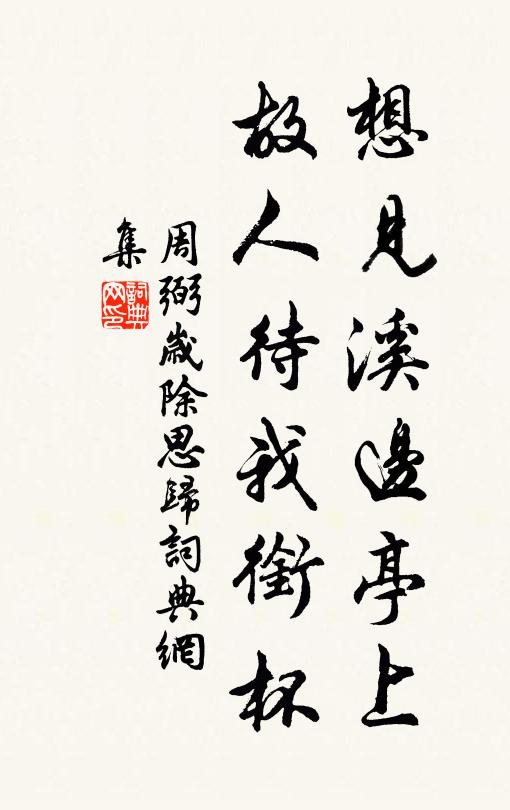 想見溪邊亭上
故人待我銜杯
周弼歲除思歸詞典網
集
詞典网印